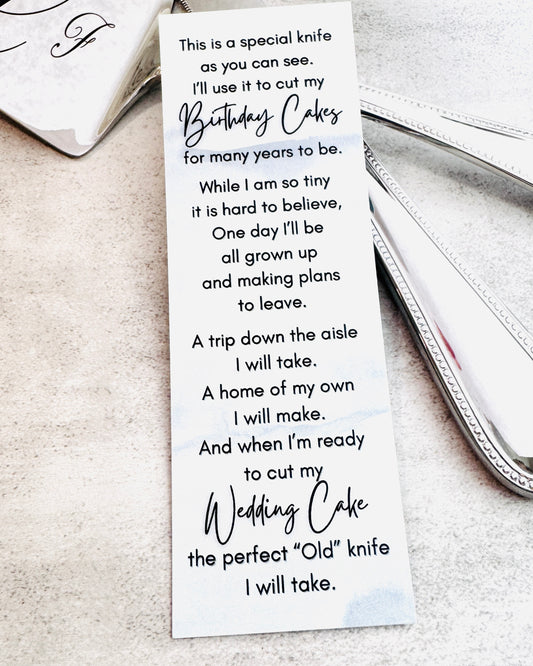 F
This is a special knife
as you can see.
I'll use it to cut my
Birthday Cakes
for many years to be.
While I am so tiny
it is hard to believe,
One day I'll be
all grown up
and making plans
to leave.
A trip down the aisle
I will take.
A home of my own
I will make.
And when I'm ready
to cut my
Wedding Cake
the perfect “Old” knife
I will take.